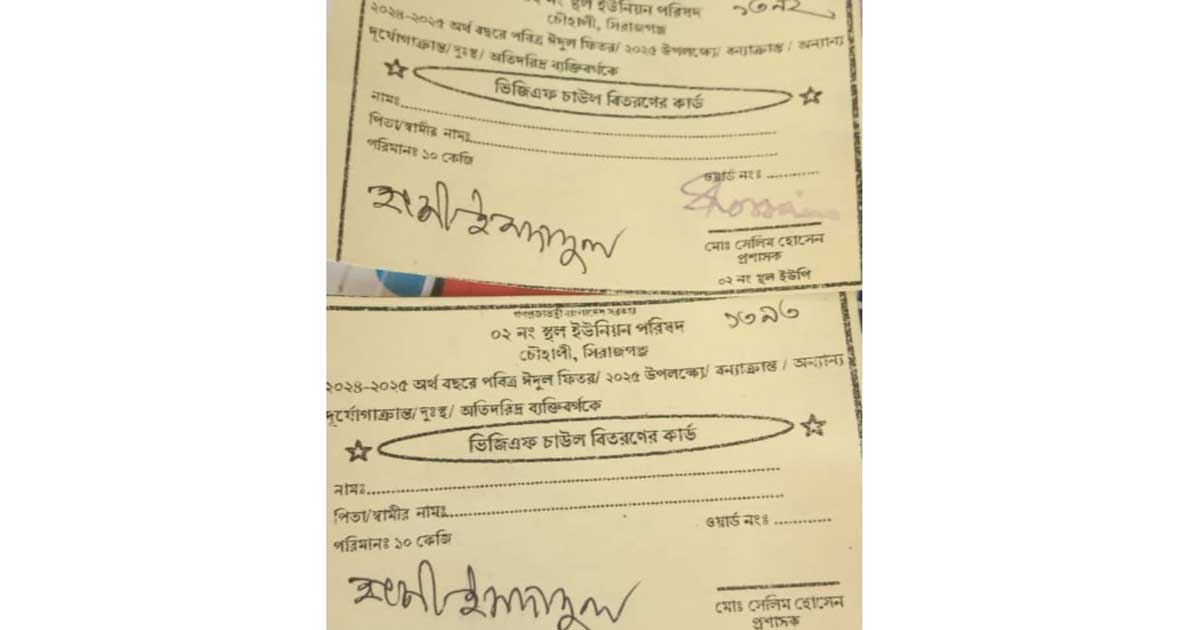 ০২ নং স্থল ইউনিয়ন পরিষদ
১৩৯২
চৌহালী, সিরাজগঞ্জ
২০২৪-২০২৫ অর্থ বছরে পবিত্র ঈদুল ফিতর/ ২০২৫ উপলক্ষ্যে/ বন্যাক্রান্ত / অন্যান্য
দূর্যোগাক্রান্ত/দুঃস্থ/ অতিদরিদ্র ব্যক্তিবর্গকে
ভিজিএফ চাউল বিতরণের কার্ড
নামঃ
পিতা/স্বামীর নামঃ
পরিমানঃ ১০ কেজি
ওয়ার্ড নংঃ
মোঃ সেলিম হোসেন
প্রশাসক
০২ নং স্থল ইউপি
গণপ্রজাতন্ত্রী বাংলাদেশ সরকার
০২ নং স্থল ইউনিয়ন পরিষদ
১৩৯৩
চৌহালী, সিরাজগঞ্জ
২০২৪-২০২৫ অর্থ বছরে পবিত্র ঈদুল ফিতর/ ২০২৫ উপলক্ষ্যে/ বন্যাক্রান্ত / অন্যান্য
দূর্যোগাক্রান্ত/দুঃস্থ/ অতিদরিদ্র ব্যক্তিবর্গকে
ভিজিএফ চাউল বিতরণের কার্ড
নামঃ
পিতা/স্বামীর নামঃ
ওয়ার্ড নংঃ
পরিমানঃ ১০ কেজি
মোঃ সেলিম হোসেন
প্রশাসক